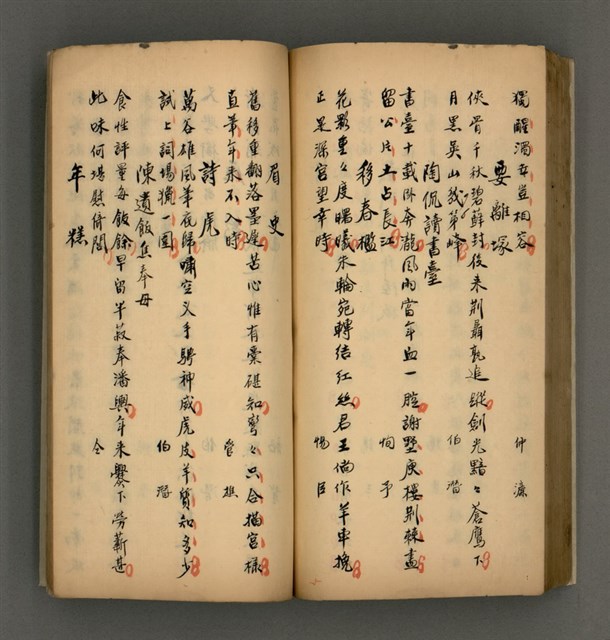 獨醒濁世豈相容　仲濂
要離塚
俠骨千秋碧蘚封後來荊聶孰追蹤劍光黯々蒼鷹下
月黑吳山第峰　伯潛
陶侃讀書臺
書臺十載臥奔瀧風雨當年血一腔謝墅庾樓荊棘盡
留公片土占長江　恂予
移春檻
花影重々度曉曦朱輪宛轉結紅絲君王倘作羊車挽
正是深宮望幸時　惕臣
眉史
舊移重翻落墨遲苦心惟有黛硯知彎々只合描宮樣
直筆年來不入時　管樵
詩虎
萬谷雄風筆夜歸嘯空叉手騁神威虎皮羊質知多少
試上詞場獵一圍　伯潛
陳遺飯焦奉母
食性評量每飯餘早留半菽奉潘輿年來爨下勞薪甚
此味何堪慰倚閭　今
年糕